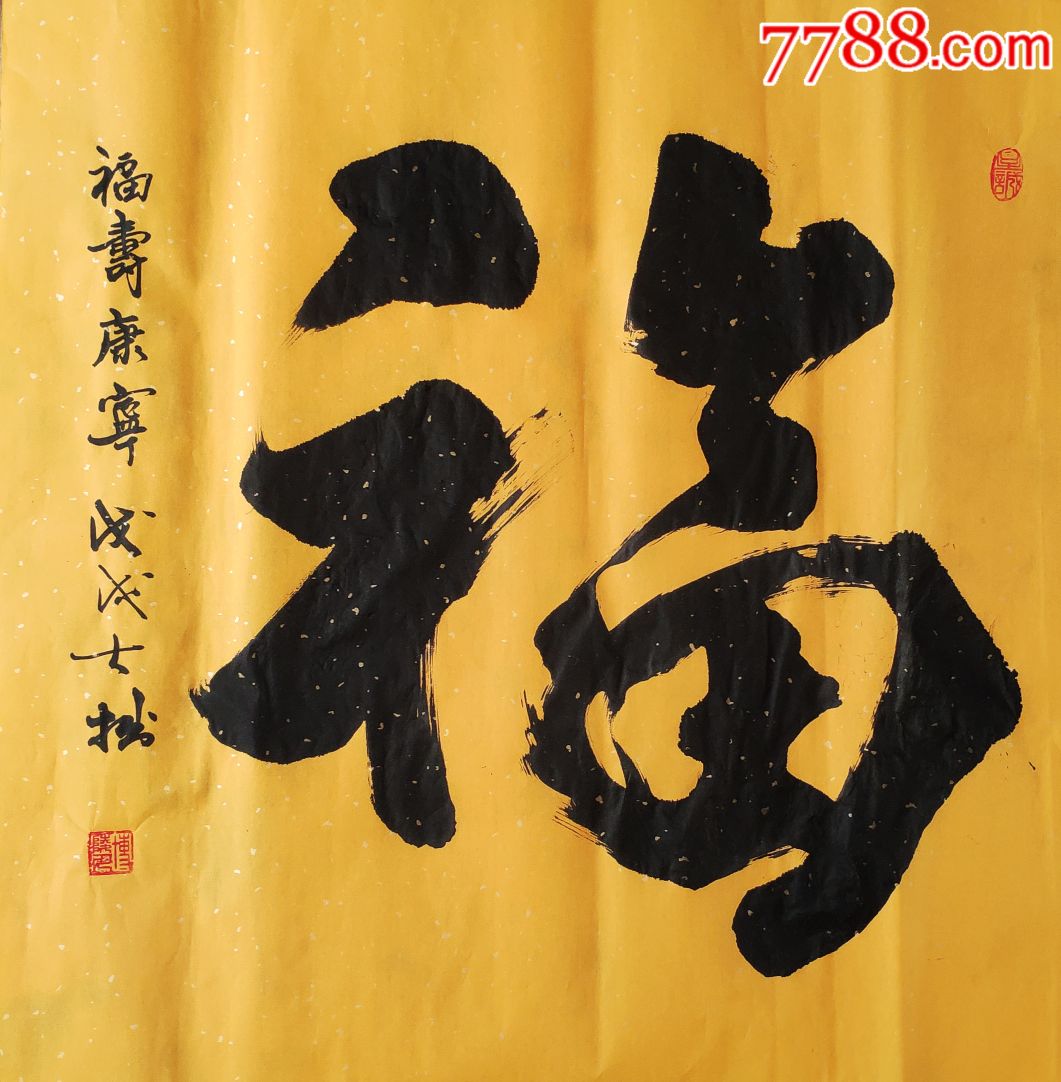 7788.com
福
福壽康寧 戊戌 士拙